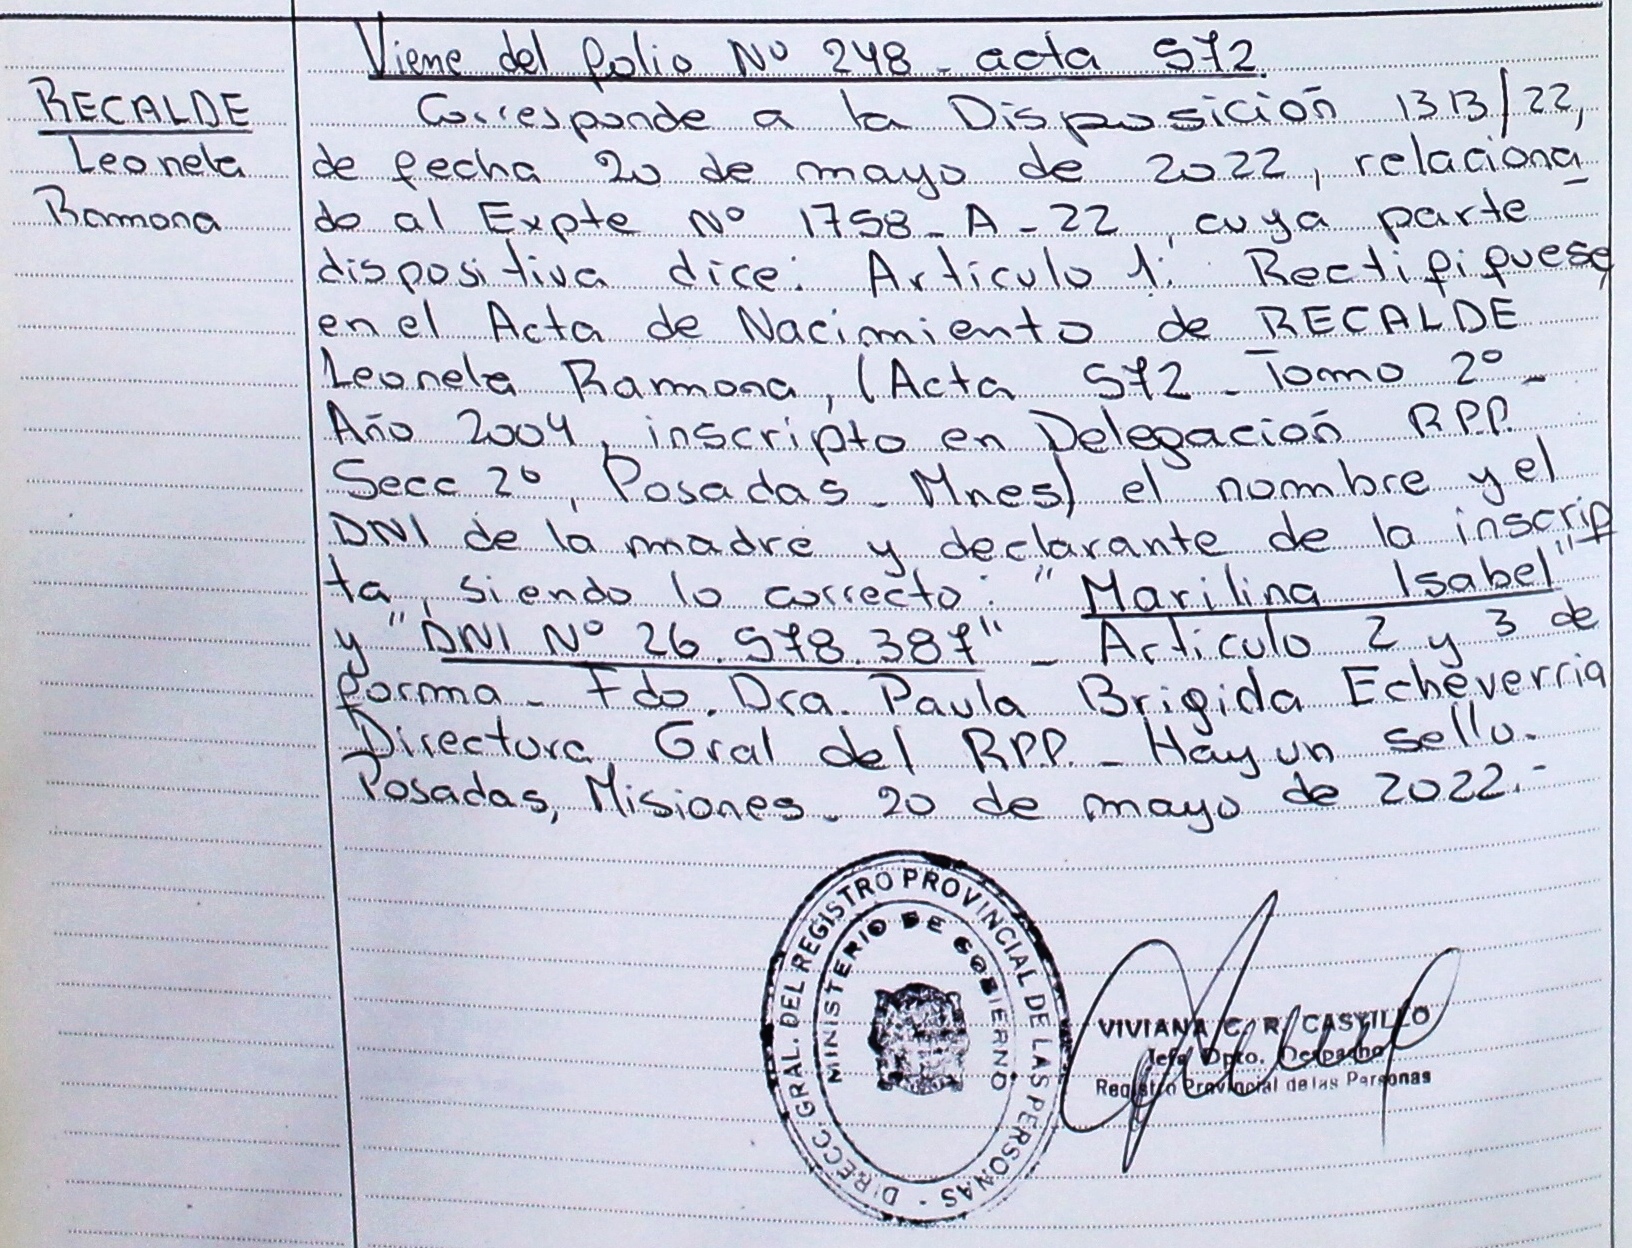 Viene del folio Nº 248 - acta 572.
RECALDE
Leonela
Ramona
Corresponde a la Disposición 1313/22,
de fecha 20 de mayo de 2022, relaciona
do al Expte Nº 1758-A-22, cuya parte
dispositiva dice: Artículo 1: Rectifiquese
en el Acta de Nacimiento de RECALDE
Leonela Ramona, (Acta 572 - Tomo 2º -
Año 2004, inscripto en Delegación RPP.
Secc 2º, Posadas - Mnes) el nombre y el
DNI de la madre y declarante de la inscrip
ta, siendo lo correcto: "Marilina Isabel"
y "DNI Nº 26.578.387" - Artículo 2 y 3 de
forma - Fdo. Dra. Paula Brigida Echeverria
Directora Gral del RPP. - Hay un sello.
Posadas, Misiones - 20 de mayo de 2022.-
DIRECC. GRAL. DEL REGISTRO PROVINCIAL DE LAS PERSONAS -
MINISTERIO DE GOBIERNO
VIVIANA C. R. CASTILLO
Jefa Dpto. Despacho
Registro Provincial de las Personas